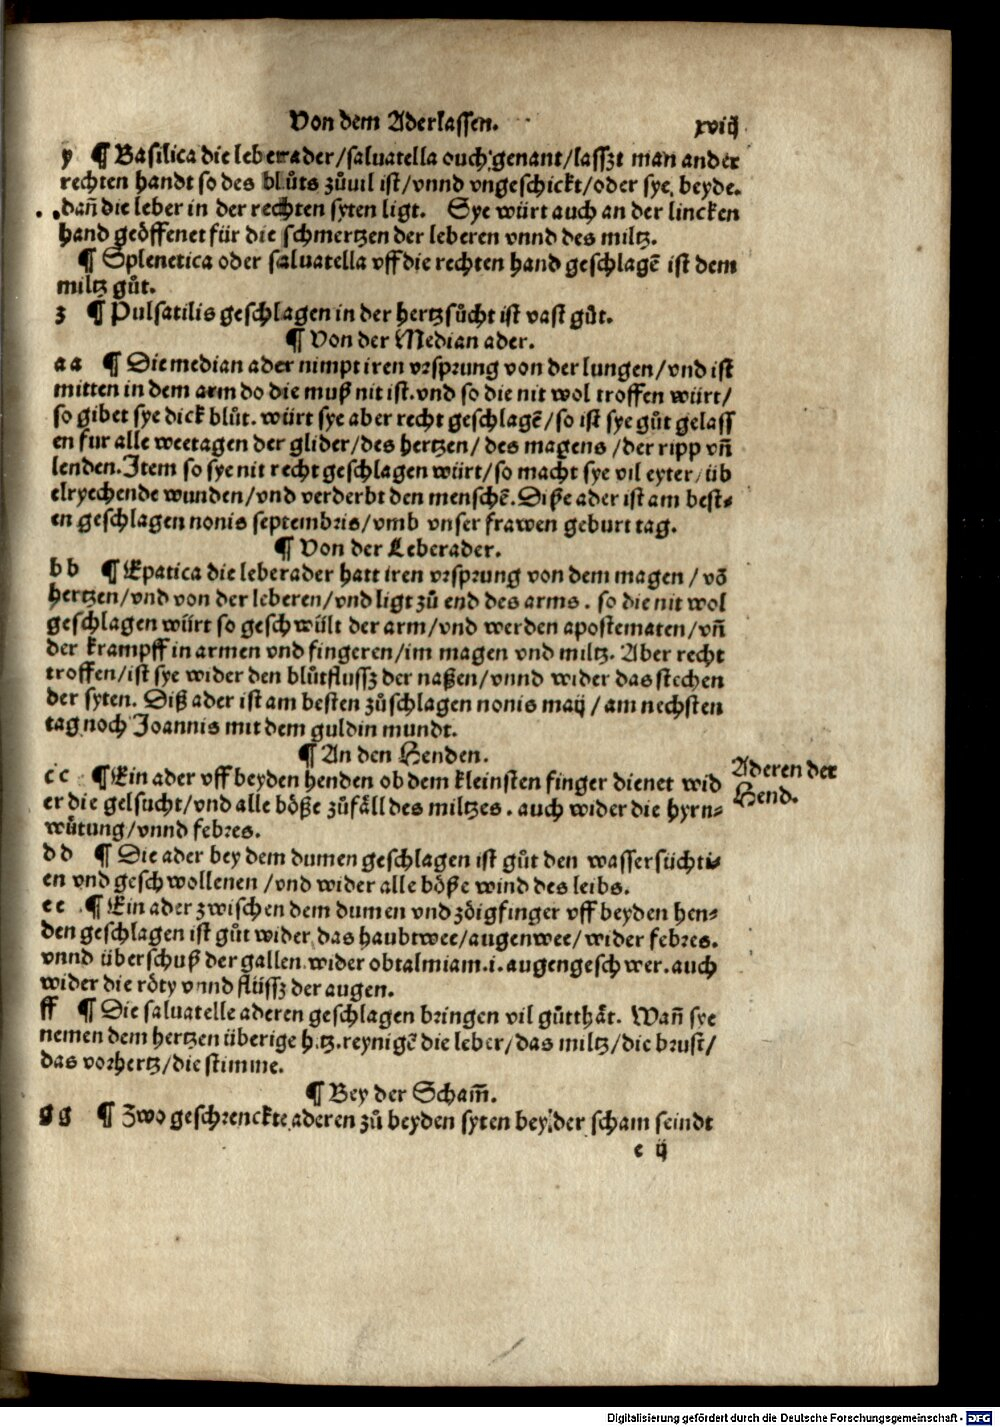 Von dem Aderlassen. xviij
y ¶ Basilica die leberader/saluatella ouch genant/lasszt man an der
rechten handt so des blůts zůuil ist/vnnd vngeschickt/oder sye beyde.
dañ die leber in der rechten syten ligt. Sye würt auch an der lincken
hand geöffenet für die schmertzen der leberen vnnd des miltz.
¶ Splenetica oder saluatella vff die rechten hand geschlagē ist dem
miltz gůt.
z ¶ Pulsatilis geschlagen in der hertzsůcht ist vast gůt.
¶ Von der Median ader.
a a ¶ Die median ader nimpt iren vrsprung von der lungen/vnd ist
mitten in dem arm do die muß nit ist. vnd so die nit wol troffen würt/
so gibet sye dick blůt. würt sye aber recht geschlagē/so ist sye gůt gelass
en fur alle weetagen der glider/des hertzen/ des magens /der ripp vñ
lenden. Item so sye nit recht geschlagen würt/so macht sye vil eyter/üb
elryechende wunden/vnd verderbt den menschē. Diße ader ist am best⸗
en geschlagen nonis septembris/vmb vnser frawen geburt tag.
¶ Von der Leberader.
b b ¶ Epatica die leberader hatt iren vrsprung von dem magen / vō
hertzen/vnd von der leberen/vnd ligt zů end des arms. so die nit wol
geschlagen würt so geschwült der arm/vnd werden apostematen/vñ
der krampff in armen vnd fingeren/im magen vnd miltz. Aber recht
troffen/ist sye wider den blůtflussz der naßen/vnnd wider das stechen
der syten. Diß ader ist am besten zů schlagen nonis maij / am nechsten
tag noch Joannis mit dem guldin mundt.
¶ An den Henden.
c c ¶ Ein ader vff beyden henden ob dem kleinsten finger dienet wid
er die gelsucht/vnd alle böße zůfäll des miltzes. auch wider die hyrn⸗
wůtung/vnnd febres.
Aderen der
Hend.
d d ¶ Die ader bey dem dumen geschlagen ist gůt den wassersüchti⸗
en vnd geschwollenen /vnd wider alle böße wind des leibs.
e e ¶ Ein ader zwischen dem dumen vnd zöigfinger vff beyden hen⸗
den geschlagen ist gůt wider das haubtwee/augenwee/wider febres.
vnnd überschuß der gallen. wider obtalmiam .i. augengeschwer. auch
wider die röty vnnd flüssz der augen.
ff ¶ Die saluatelle aderen geschlagen bringen vil gůtthät. Wañ sye
nemen dem hertzen überige hitz. reynigē die leber/das miltz/die brust/
das vorhertz/die stimme.
¶ Bey der Scham̃.
g g ¶ Zwo geschrenckte aderen zů beyden syten bey der scham seindt
c ij
Digitalisierung gefördert durch die Deutsche Forschungsgemeinschaft - DFG